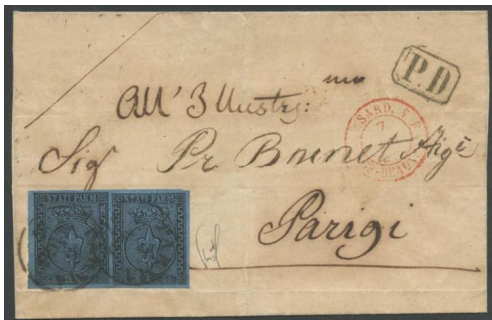 P.D.
SARD.
7
All'Illustr: mo
Sig Pr Brunet
Parigi
STATI PARM STATI PARM